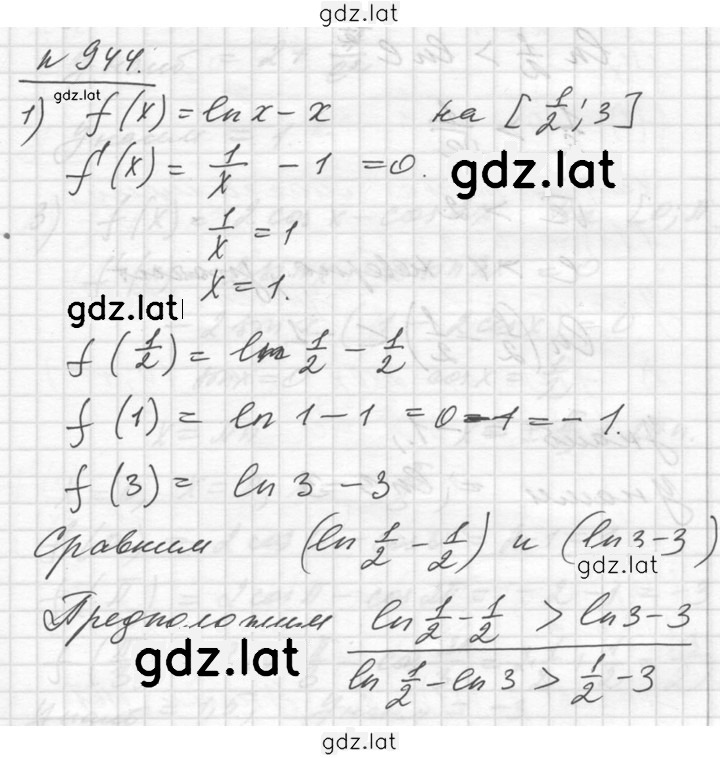 gdz.lat
n 944.
gdz.lat
1) f(x) = ln x - x на [1/2; 3]
f'(x) = 1/x - 1 = 0.
gdz.lat
1/x = 1
x = 1.
gdz.lat
f(1/2) = ln 1/2 - 1/2
f(1) = ln 1 - 1 = 0 - 1 = - 1.
f(3) = ln 3 - 3
Сравним (ln 1/2 - 1/2) и (ln 3 - 3)
gdz.lat
Предположим ln 1/2 - 1/2 > ln 3 - 3
gdz.lat
ln 1/2 - ln 3 > 1/2 - 3
gdz.lat